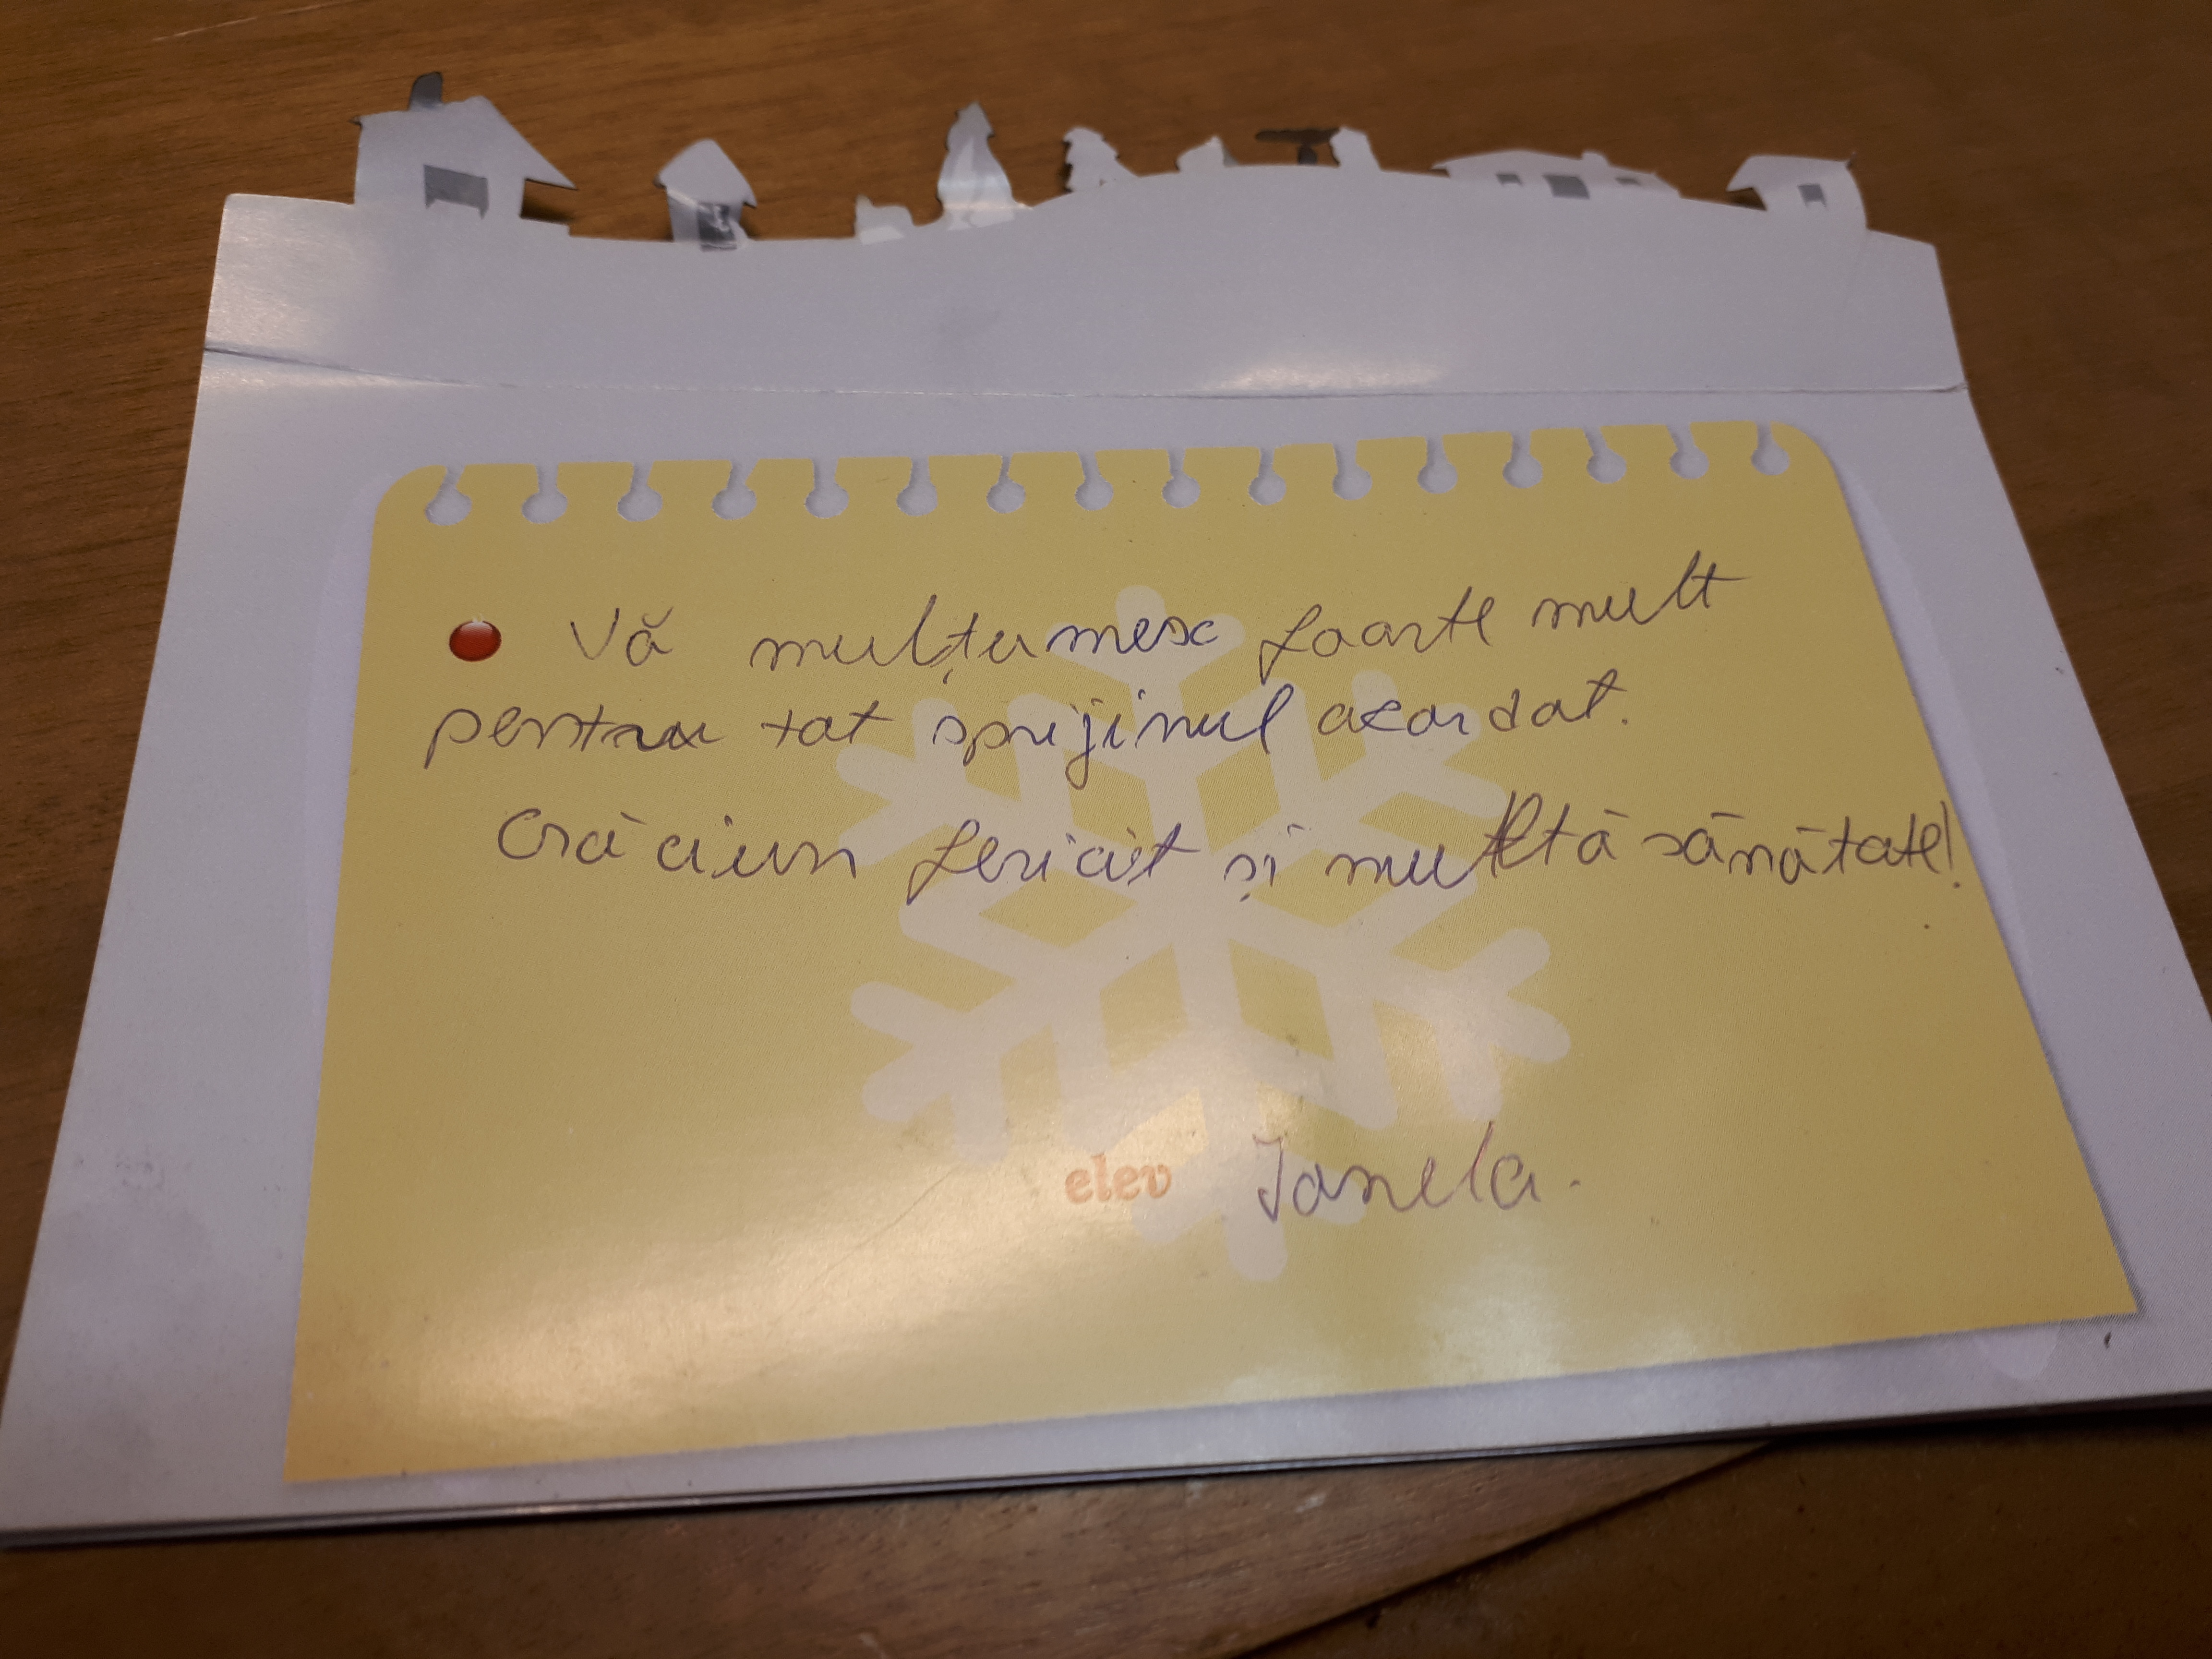 Vă mulțumesc foarte mult
pentru tot sprijinul acordat.
Crăciun fericit și multă sănătate!
elev Ionela.